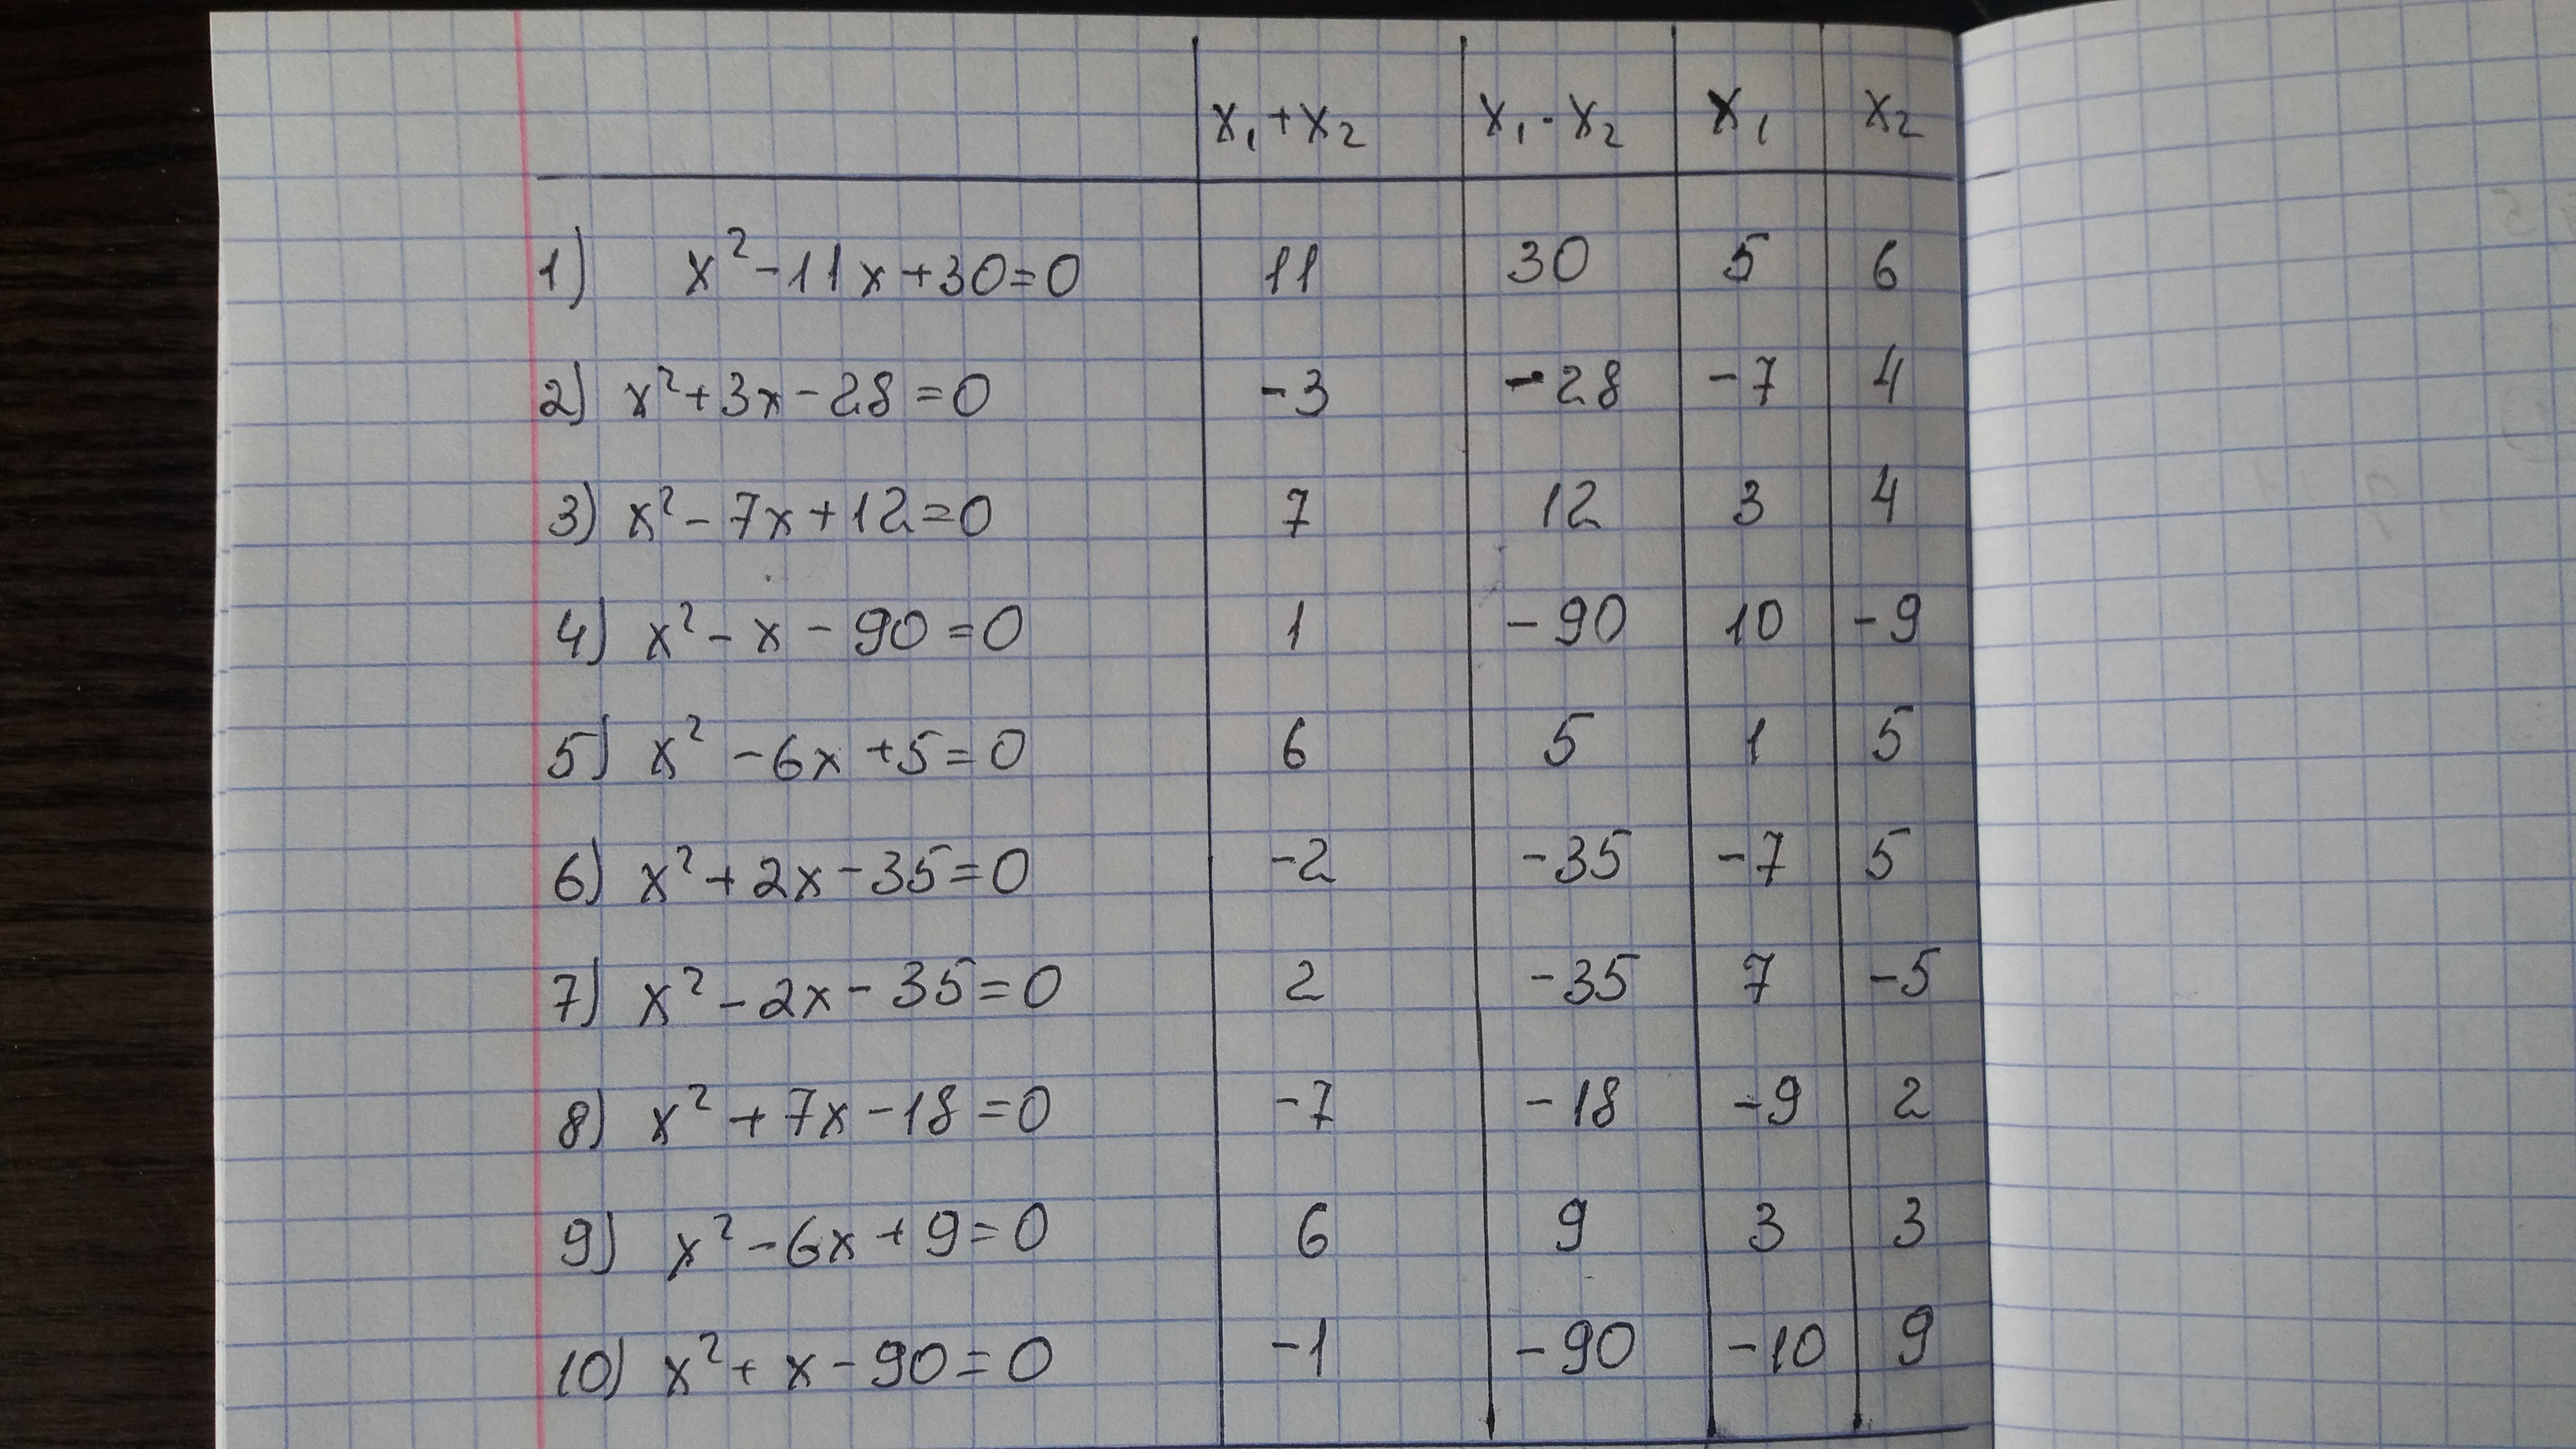 x₁+x₂ x₁·x₂ x₁ x₂
1) x²-11x+30=0 11 30 5 6
2) x²+3x-28=0 -3 -28 -7 4
3) x²-7x+12=0 7 12 3 4
4) x²-x-90=0 1 -90 10 -9
5) x²-6x+5=0 6 5 1 5
6) x²+2x-35=0 -2 -35 -7 5
7) x²-2x-35=0 2 -35 7 -5
8) x²+7x-18=0 -7 -18 -9 2
9) x²-6x+9=0 6 9 3 3
10) x²+x-90=0 -1 -90 -10 9